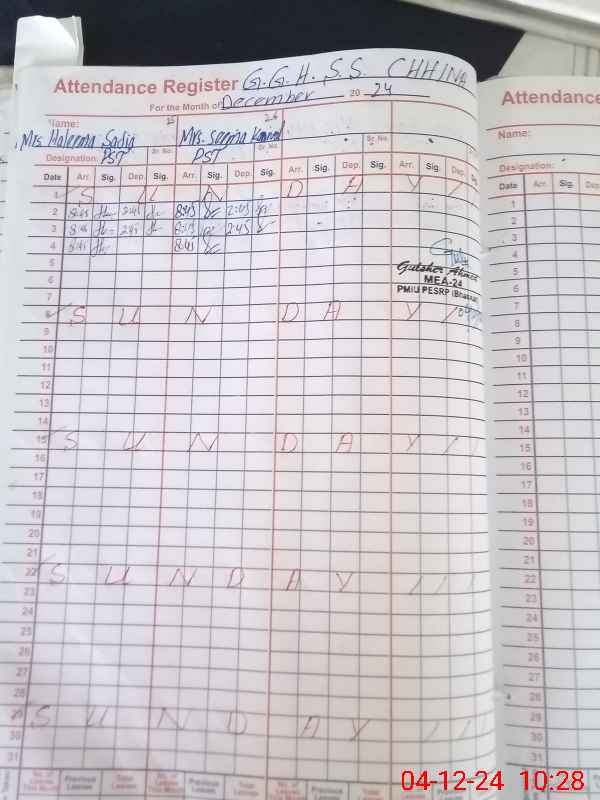 Attendance Register G.G.H.S.S. CHHINA
For the Month of December 2024
Name:
Mrs Haleema Sadia 25 Mrs.
Designation: PST Sr. No. PST Sr. No. Sr. No.
Date Arr. Sig. Dep. Sig. Arr. Sig. Dep. Sig. Arr. Sig. Dep. Sig. Arr. Sig. Dep.
1 S U N D A Y
2 8:45 2:45 8:45 2:45
3 8:45 2:45 8:45 2:45
4 8:45 8:45
5
6
7
8 S U N D A Y
9
10
11
12
13
14
15 S U N D A Y
16
17
18
19
20
21
22 S U N D A Y
23
24
25
26
27
28
29 S U N D A Y
30
31
No. of Leaves This Month Previous Leaves Total Leaves No. of Leaves This Month Previous Leaves Total Leaves No. of Leaves This Month Previous Leaves Total Leaves
Gulsher Ahmed
MEA-24
PMIU PESRP (Bhakkar)
Attendance
Name:
Designation:
Date Arr. Sig. Dep.
1
2
3
4
5
6
7
8
9
10
11
12
13
14
15
16
17
18
19
20
21
22
23
24
25
26
27
28
29
30
31
04-12-24 10:28